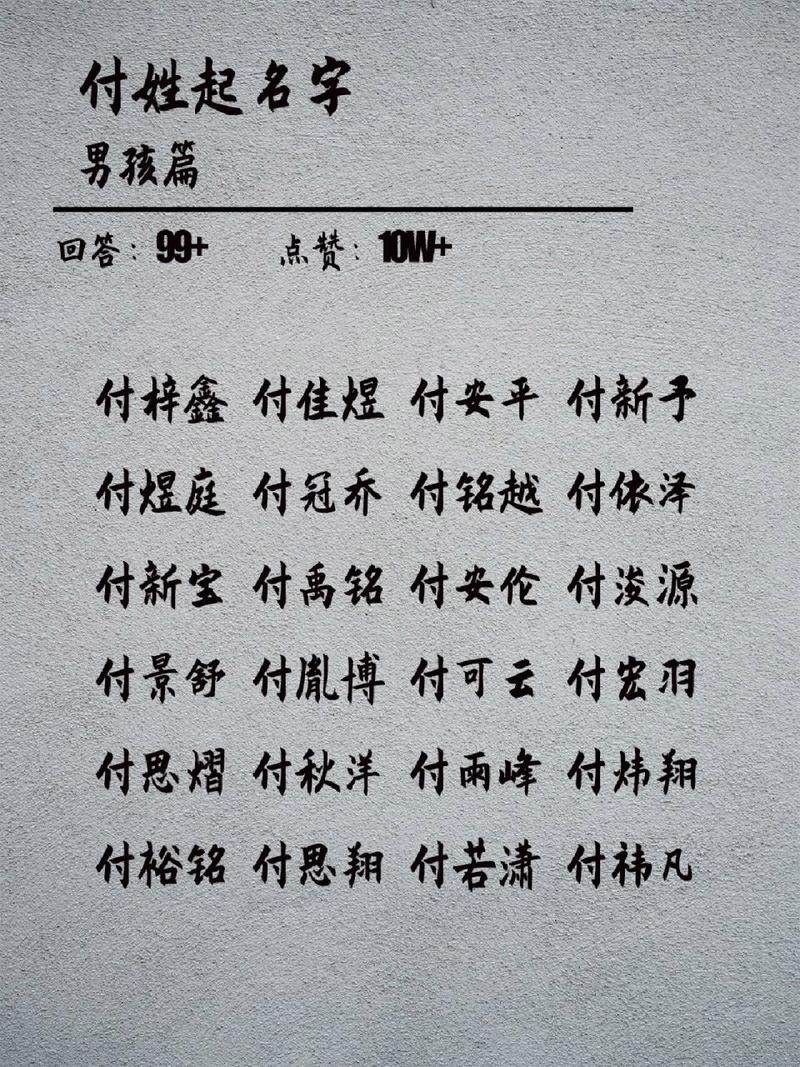 付姓起名字
男孩篇
回答：99+ 点赞：10W+
付梓鑫 付佳煜 付安平 付新予
付煜庭 付冠乔 付铭越 付依泽
付新宝 付禹铭 付安伦 付浚源
付景舒 付胤博 付可云 付宏羽
付思熠 付秋洋 付雨峰 付炜翔
付裕铭 付思翔 付若潇 付祎凡